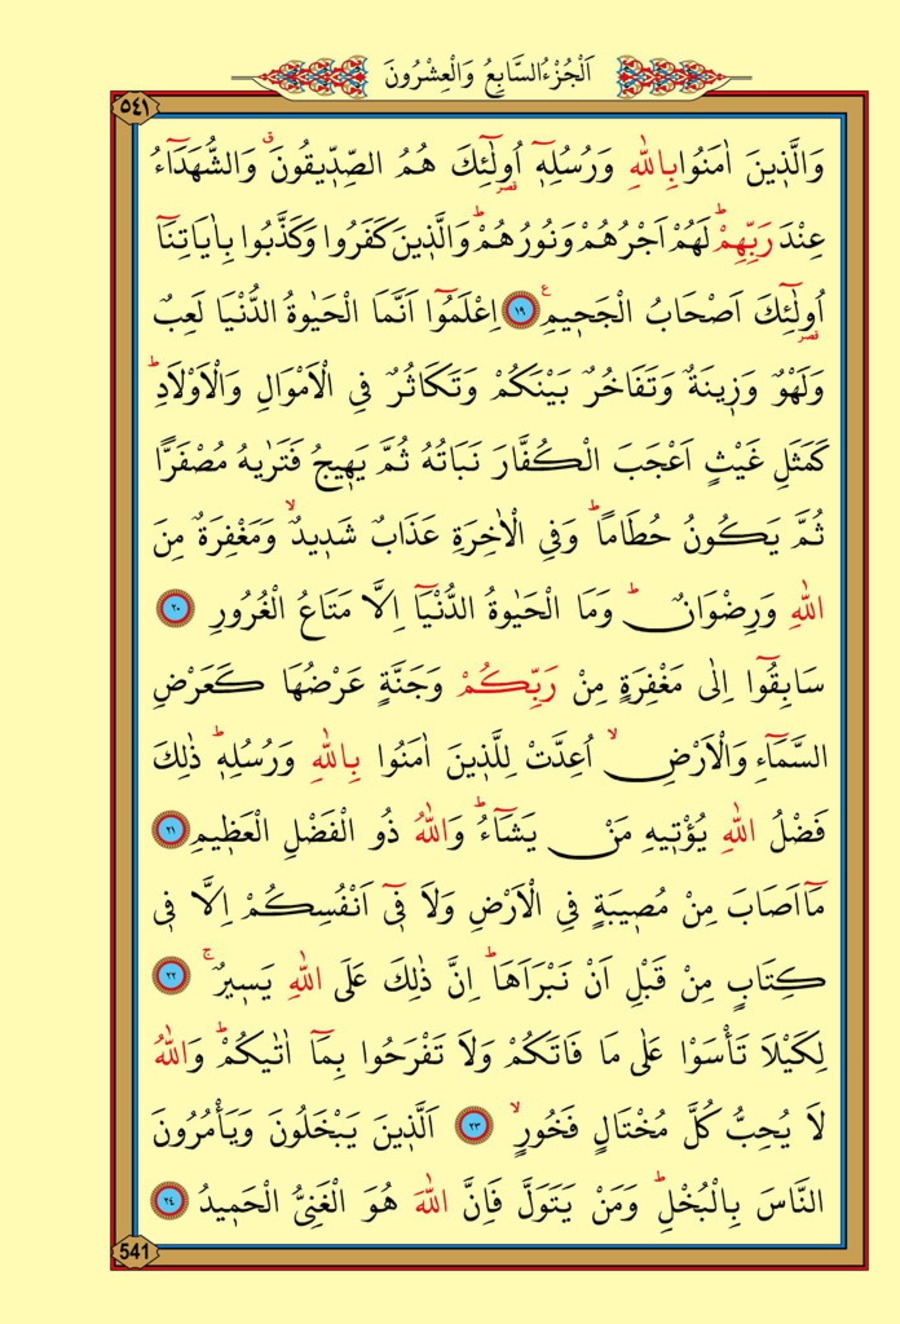 اَلْجُزْءُ السَّابِعُ وَالْعِشْرُونَ
٥٤١
وَالَّذ۪ينَ اٰمَنُوا بِاللّٰهِ وَرُسُلِه۪ٓ اُو۬لٰٓئِكَ هُمُ الصِّدّ۪يقُونَۗ وَالشُّهَدَٓاءُ
عِنْدَ رَبِّهِمْۜ لَهُمْ اَجْرُهُمْ وَنُورُهُمْۜ وَالَّذ۪ينَ كَفَرُوا وَكَذَّبُوا بِاٰيَاتِنَٓا
اُو۬لٰٓئِكَ اَصْحَابُ الْجَح۪يمِ۟ ﴿١٩﴾ اِعْلَمُٓوا اَنَّمَا الْحَيٰوةُ الدُّنْيَا لَعِبٌ
وَلَهْوٌ وَز۪ينَةٌ وَتَفَاخُرٌ بَيْنَكُمْ وَتَكَاثُرٌ فِي الْاَمْوَالِ وَالْاَوْلَادِۜ
كَمَثَلِ غَيْثٍ اَعْجَبَ الْكُفَّارَ نَبَاتُهُ ثُمَّ يَه۪يجُ فَتَرٰيهُ مُصْفَرًّا
ثُمَّ يَكُونُ حُطَامًاۜ وَفِي الْاٰخِرَةِ عَذَابٌ شَد۪يدٌۙ وَمَغْفِرَةٌ مِنَ
اللّٰهِ وَرِضْوَانٌۜ وَمَا الْحَيٰوةُ الدُّنْيَٓا اِلَّا مَتَاعُ الْغُرُورِ ﴿٢٠﴾
سَابِقُٓوا اِلٰى مَغْفِرَةٍ مِنْ رَبِّكُمْ وَجَنَّةٍ عَرْضُهَا كَعَرْضِ
السَّمَٓاءِ وَالْاَرْضِۙ اُعِدَّتْ لِلَّذ۪ينَ اٰمَنُوا بِاللّٰهِ وَرُسُلِه۪ۜ ذٰلِكَ
فَضْلُ اللّٰهِ يُؤْت۪يهِ مَنْ يَشَٓاءُۜ وَاللّٰهُ ذُو الْفَضْلِ الْعَظ۪يمِ ﴿٢١﴾
مَٓا اَصَابَ مِنْ مُص۪يبَةٍ فِي الْاَرْضِ وَلَا ف۪ٓي اَنْفُسِكُمْ اِلَّا ف۪ي
كِتَابٍ مِنْ قَبْلِ اَنْ نَبْرَاَهَاۜ اِنَّ ذٰلِكَ عَلَى اللّٰهِ يَس۪يرٌۚ ﴿٢٢﴾
لِكَيْلَا تَأْسَوْا عَلٰى مَا فَاتَكُمْ وَلَا تَفْرَحُوا بِمَٓا اٰتٰيكُمْۜ وَاللّٰهُ
لَا يُحِبُّ كُلَّ مُخْتَالٍ فَخُورٍۙ ﴿٢٣﴾ اَلَّذ۪ينَ يَبْخَلُونَ وَيَأْمُرُونَ
النَّاسَ بِالْبُخْلِۜ وَمَنْ يَتَوَلَّ فَاِنَّ اللّٰهَ هُوَ الْغَنِيُّ الْحَم۪يدُ ﴿٢٤﴾
541